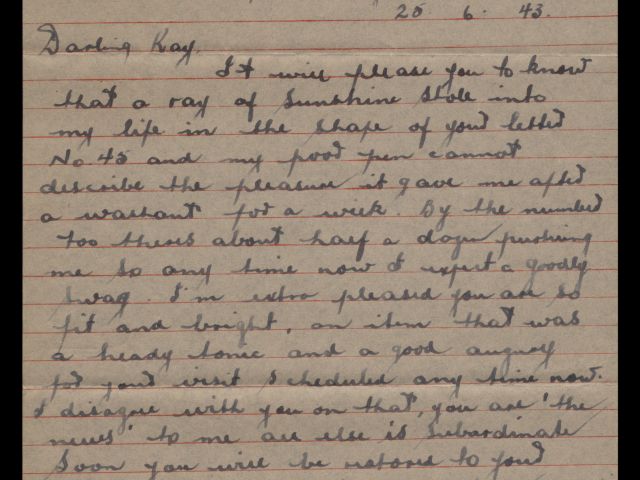 25. 6. 43.
Darling Kay,
It will please you to know
that a ray of Sunshine Stole into
my life in the shape of your letter
No. 45 and my poor pen cannot
describe the pleasure it gave me after
a for a week. By the number
too theres about half a dozen pushing
me so any time now I expect a goodly
swag. I'm extra pleased you are so
fit and bright, an item that was
a heady tonic and a good augury
for your visit Scheduled any time now.
I disagree with you on that, you are 'the
news' to me all else is Subordinate
Soon you will be restored to your